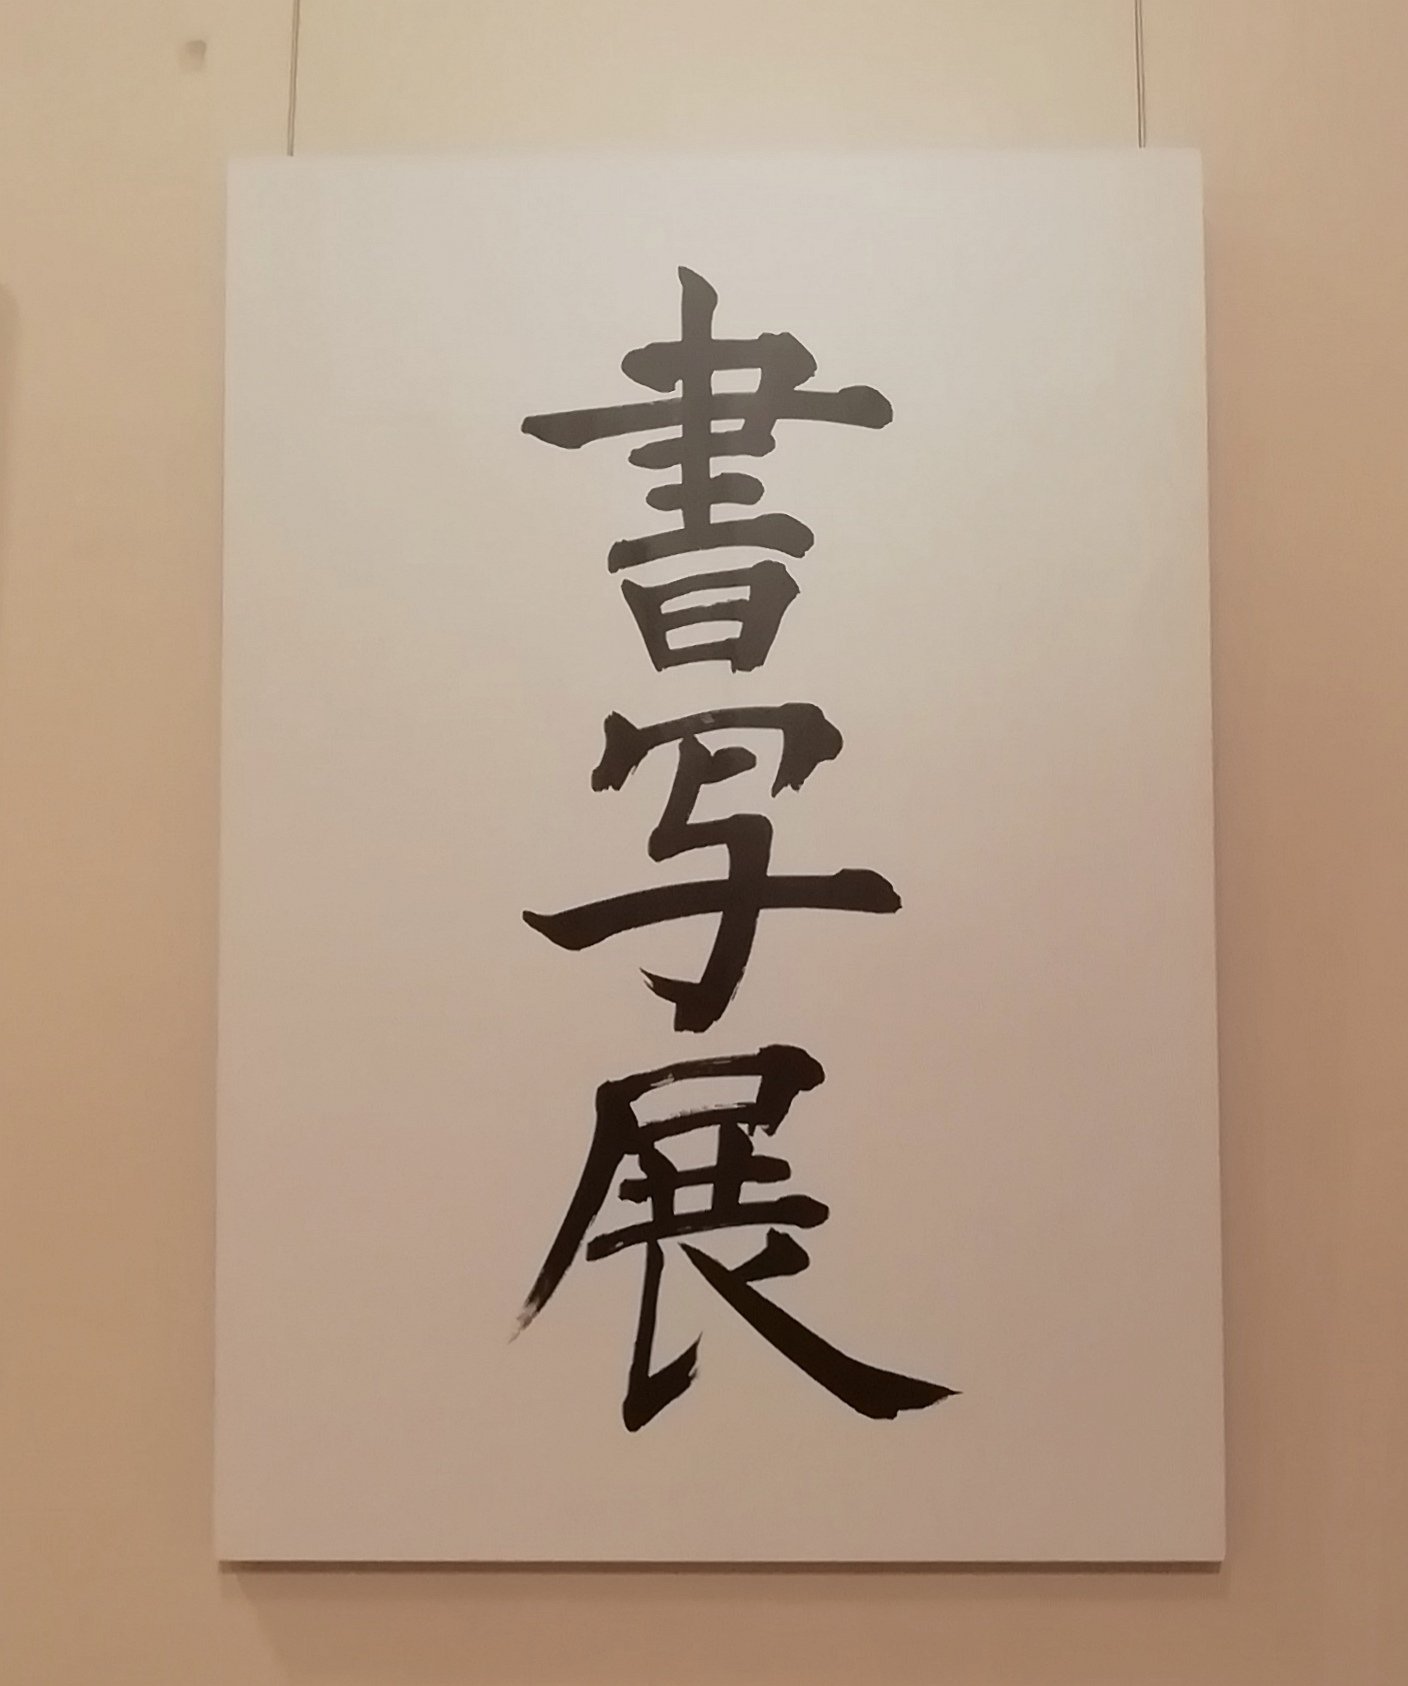 書写展